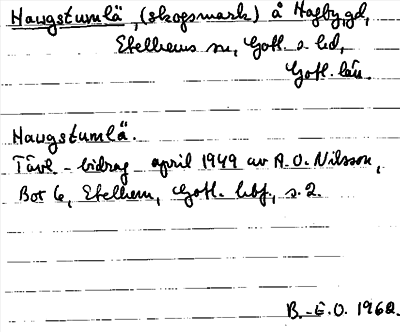 Haugstumlä, (skogsmark) å Hagby, gd,
Etelhems sn, Gotl. s. hd,
Gotl. län.
Haugstumlä.
Tävl-bidrag april 1949 av A.O. Nilsson,
Box 6, Etelhem, Gotl. hbf., s. 2.
B.-E.O. 1962.